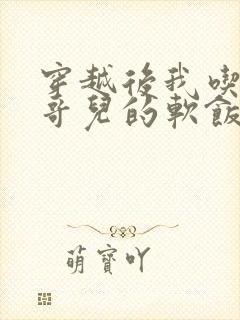 穿越後我喫
哥兒的軟飯
萌寶吖